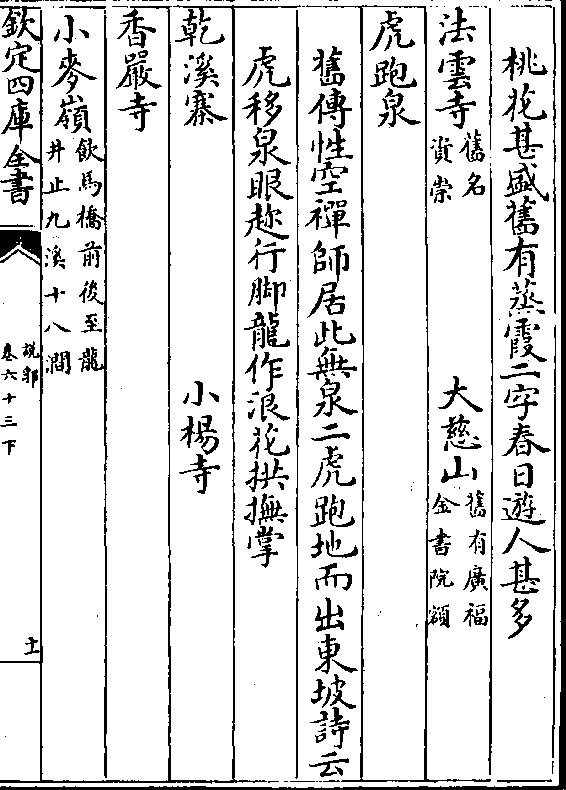 桃花甚盛舊有蒸霞二字春日遊人甚多
法雲寺舊名資崇 大慈山舊有廣福金書院額
虎跑泉
舊傳性空禪師居此無泉二虎跑地而出東坡詩云
虎移泉眼趂行脚龍作浪花拱撫掌
乾溪寨 小楊寺
香嚴寺
小麥嶺飲馬橋前後至龍井止九溪十八澗
欽定四庫全書
說郛
卷六十三下
十一